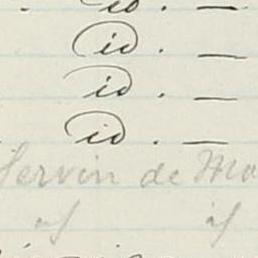 id. —
id. —
id. —
id. —
Servin de Ma